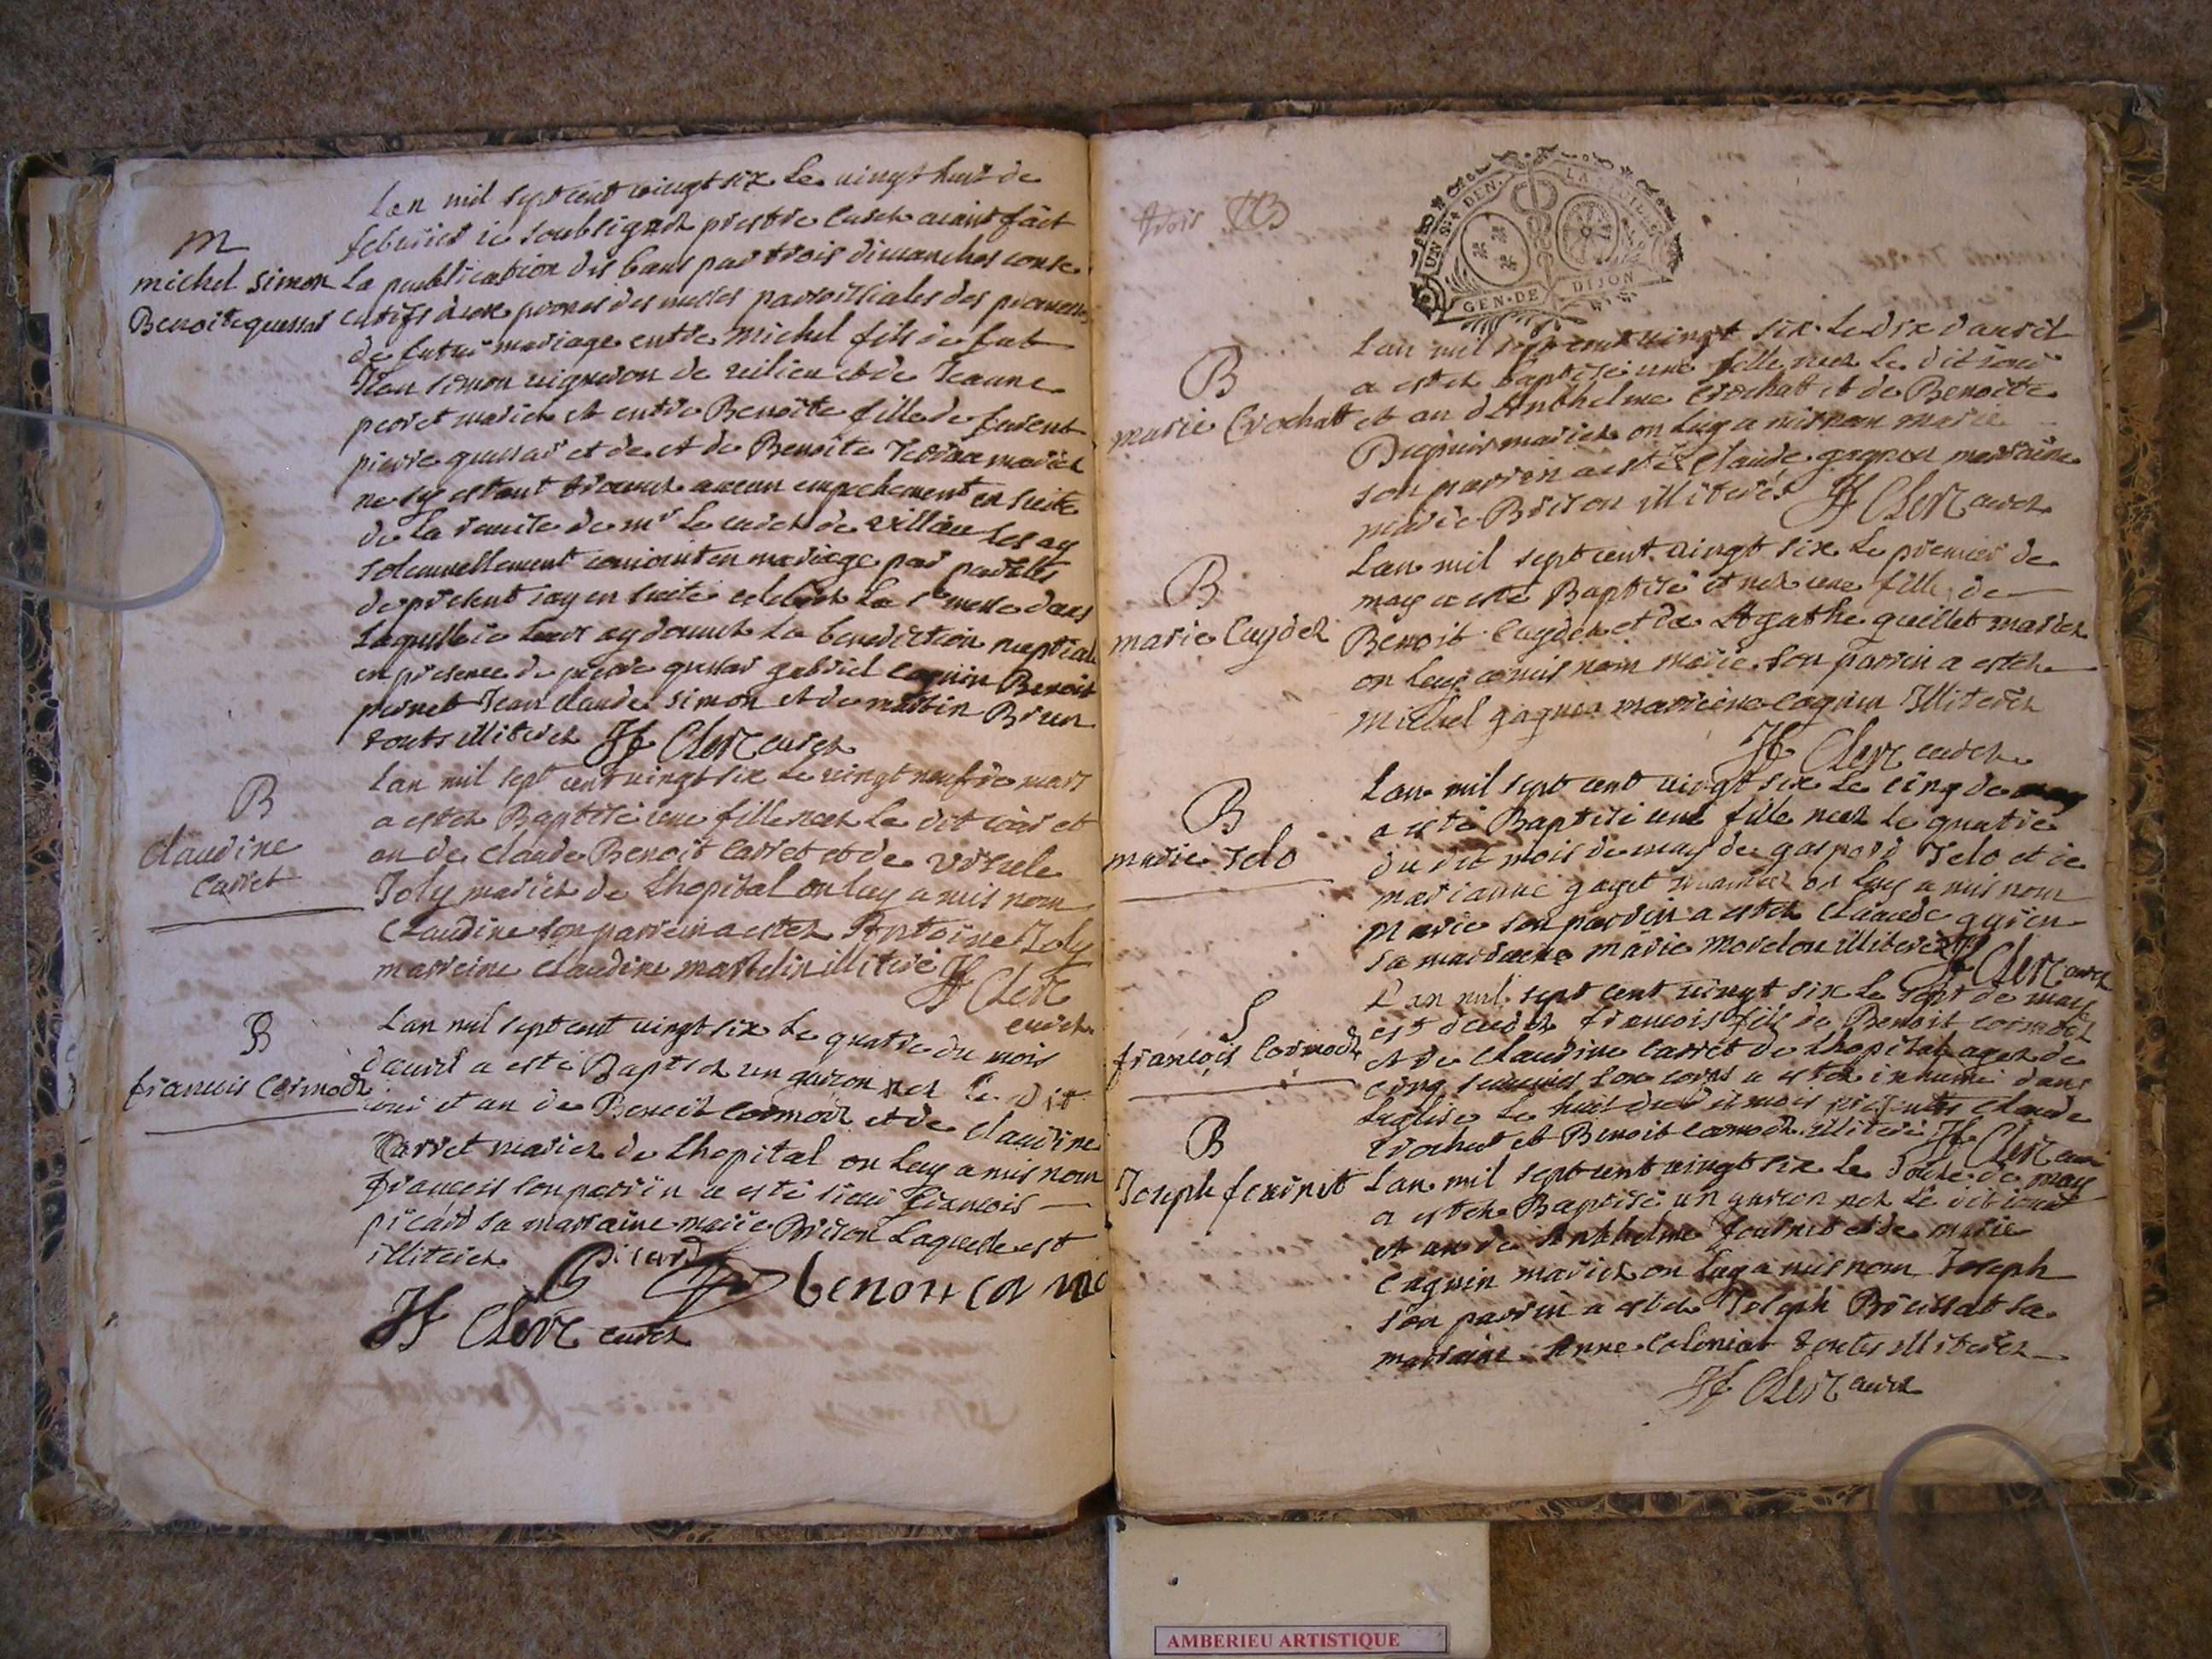 M
michel simon
Benoite quessar
Lan mil sept cent vingt six Le vingt huit de
febvrier ie soubsigned prestre cured aiant fait
La publication des bans par trois dimanches conse
cutifs aux prones des messes parroissiales des promesses
de futur mariage entre michel fils de fut
Jean simon vigneron de vilieu et de Jeanne
perret mariez et entre Benoite fille de furent
pierre quessar et de et de Benoite mariez
ne sy estant trouvez aucun empechement en suite
de La remise de mr Le cured de villieu Les ay
solennellement conioint en mariage par parolles
de present iay en suite celebrez La ste messe dans
Laquelle ie Leur ay donnez La benediction nuptiale
en presence de pierre quessar gabriel caguin Benoit
pernet Jean claude simon et de martin Brun
touts illiterez Clerc curez
B
claudine
carret
Lan mil sept cent vingt six Le vingt neuf de mars
a estez Baptisé une fille neez Le dit iour et
an de claude Benoit Carret et de ursule
Joly mariez de Lhopital on Luy a mis nom
claudine son parrein a estez Antoine Joly
marreine claudine martelin illiteré Clerc
curez
B
francois Cormodz
Lan mil sept cent vingt six Le quatre du mois
davril a esté Baptisez un garcon nez Le dit
iour et an de Benoit Cormodz et de claudine
Carret mariez de Lhopital on Luy a mis nom
François son parrin a esté sieur francois
picard sa marraine marie Brison Laquelle est
illiterez
Picard
benoit cormo
Clerc curez
trois
UN Sd DEN. LA FEUILLE
GEN. DE DIJON
B
marie Crochatt
Lan mil sept cent vingt six Le dix d avril
a estez baptisé une fille neez Le dit iour
et an d Anthelme Crochatt et de Benoite
Dupuis mariez on Luy a mis nom marie
son parrin a esté Claude gagneu marraine
marie Brison illiterés Clerc curez
B
marie Cuydez
Lan mil sept cent vingt six Le premier de
may a esté Baptisé et nez une fille de
Benoit Cuydez et de Agathe quillet mariez
on Luy a mis nom marie son parrin a estez
michel gagneu marreine caguin Illiterez
Clerc curez
B
marie Jelo
Lan mil sept cent vingt six Le cinq de may
a esté Baptisé une fille neez Le quatre
du dit mois de may de gaspard Jelo et de
marianne gayet mariez on Luy a mis nom
marie son parrin a estez claude
sa marraine marie morelon illiterés Clerc curez
S
françois Cormodz
L an mil sept cent vingt six Le sept de may
est decedez francois fils de Benoit cormodz
et de claudine carret de Lhopital agez de
cinq semaines son corps a estez inhumé dans
Leglise Le huit du dit mois presents claude
Crochat et Benoit cormodz illiteré Clerc curé
B
Joseph fournet
Lan mil sept cent vingt six Le douze de may
a estez Baptisé un garcon nez Le dit iour
et an de Anthelme fournet et de marie
caguin mariez on Luy a mis nom Joseph
son parrin a estez Joseph Broissat sa
marraine Anne coloniat toutes illiterez
Clerc curez
AMBERIEU ARTISTIQUE